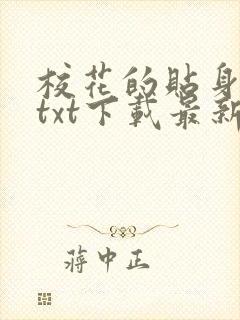 校花的貼身
txt下載最新
蔣中正